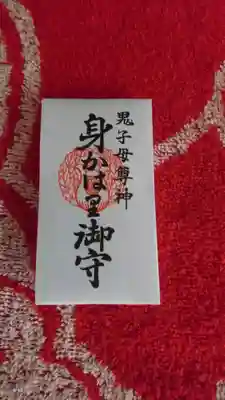 鬼子母尊神
身かはり御守